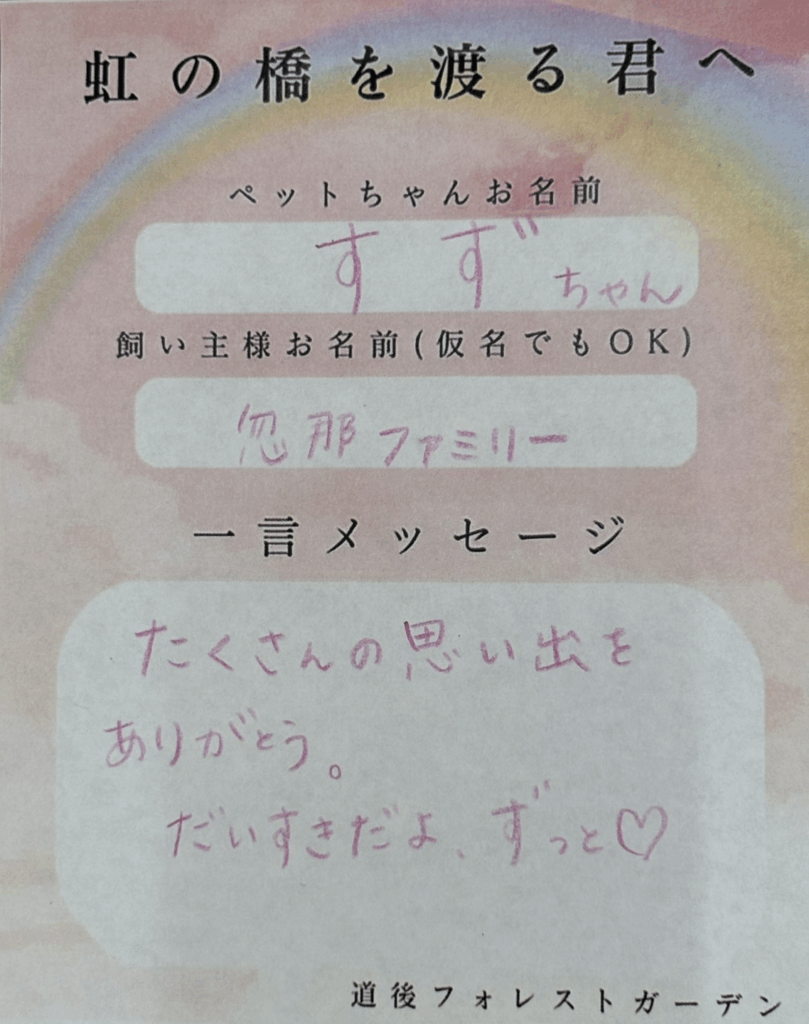 虹の橋を渡る君へ
ペットちゃんお名前
すずちゃん
飼い主様お名前(仮名でもOK)
忽那ファミリー
一言メッセージ
たくさんの思い出を
ありがとう。
だいすきだよ、ずっと♡
道後フォレストガーデン